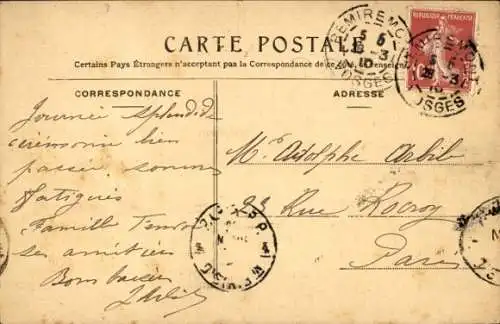 CARTE POSTALE
Certains Pays Étrangers n'acceptent pas la Correspondance de
CORRESPONDANCE
ADRESSE
REPUBLIQUE FRANÇAISE
REMIREMONT
5 6
28-3
10
VOSGES
Journée splendide
cérémonie bien
passée sommes
fatigués
Famille
ses amitiés
Bons baisers
Mr Adolphe Arbib
23 Rue Rocroy
Paris